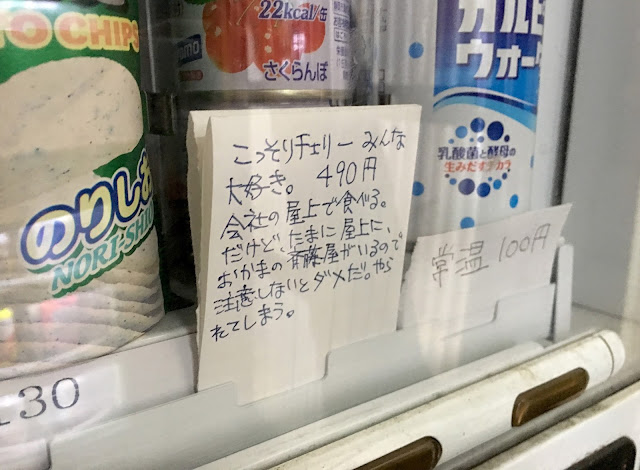 TO CHIPS
のりしお
NORI-SHIO
22kcal/缶
さくらんぼ
カルピ
ウォー
乳酸菌と酵母の
生みだす カラ
こっそりチェリー みんな
大好き。 490円
会社の屋上で食べる。
だけど、たまに屋上に、
おかまの斉藤屋がいるので
注意しないとダメだ。やら
れてしまう。
常温 100円
130